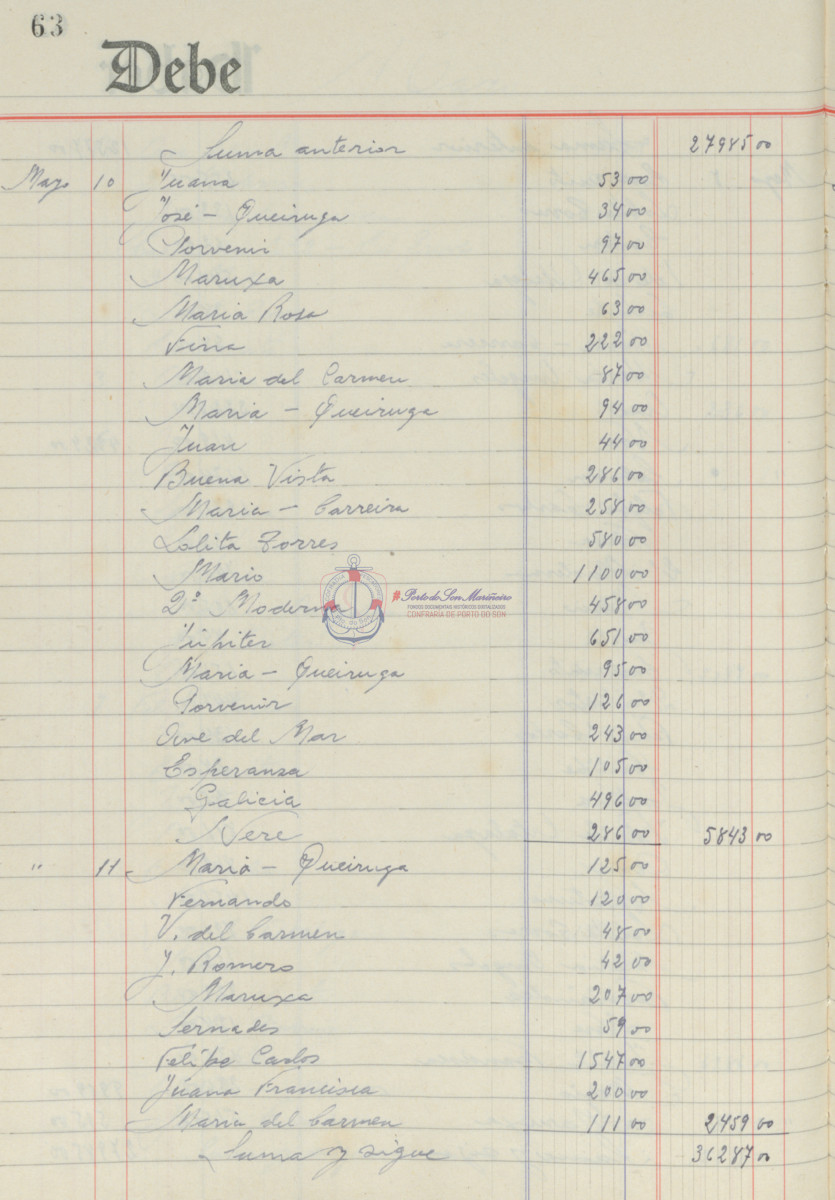 63
Debe
Suma anterior 27985 00
Mayo 10 Juana 53 00
José - Queiruga 34 00
Porvenir 97 00
Maruxa 465 00
Maria Rosa 63 00
Fina 222 00
Maria del Carmen 87 00
Maria - Queiruga 94 00
Juan 44 00
Buena Vista 286 00
Maria - Carreira 258 00
Lolita Torres 580 00
Mario 1100 00
2ª Moderna 458 00
Júpiter 651 00
Maria - Queiruga 95 00
Porvenir 126 00
Ave del Mar 243 00
Esperanza 105 00
Galicia 496 00
Nere 286 00 5843 00
" 11 Maria - Queiruga 125 00
Fernando 120 00
V. del Carmen 48 00
J. Romero 42 00
Maruxa 207 00
Sernades 59 00
Felipe Carlos 1547 00
Juana Francisca 200 00
Maria del Carmen 111 00 2459 00
Suma y sigue 36287 00
#Porto do Son Mariñeiro
FONDOS DOCUMENTAIS HISTÓRICOS DIXITALIZADOS
CONFRARÍA DE PORTO DO SON